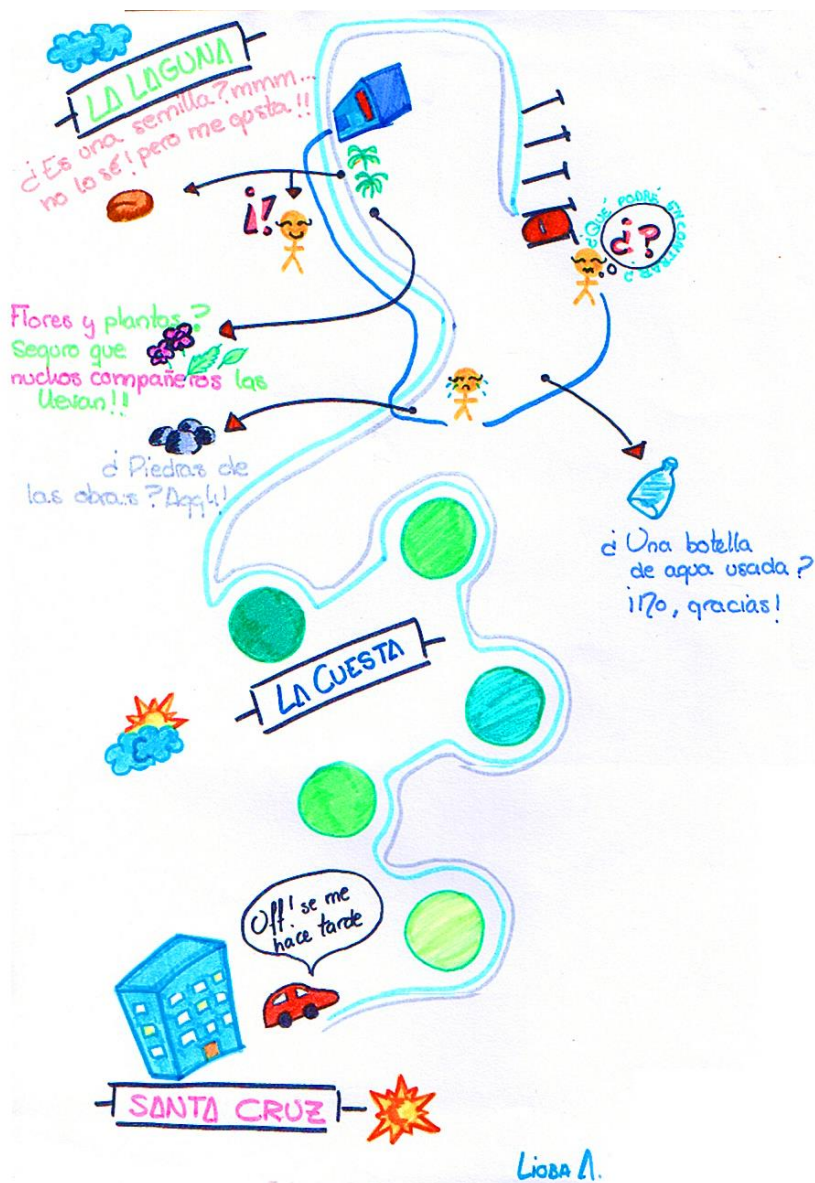 LA LAGUNA
¿Es una semilla? mmm...
no lo sé! pero me gusta!!
¡!
¿QUÉ PODRÉ ENCONTRAR?
¿?
Flores y plantas?
Seguro que
muchos compañeros las
llevan!!
¿Piedras de
las obras? Aggh!
¿Una botella
de agua usada?
¡No, gracias!
LA CUESTA
Off! se me
hace tarde
SANTA CRUZ
LIOBA A.